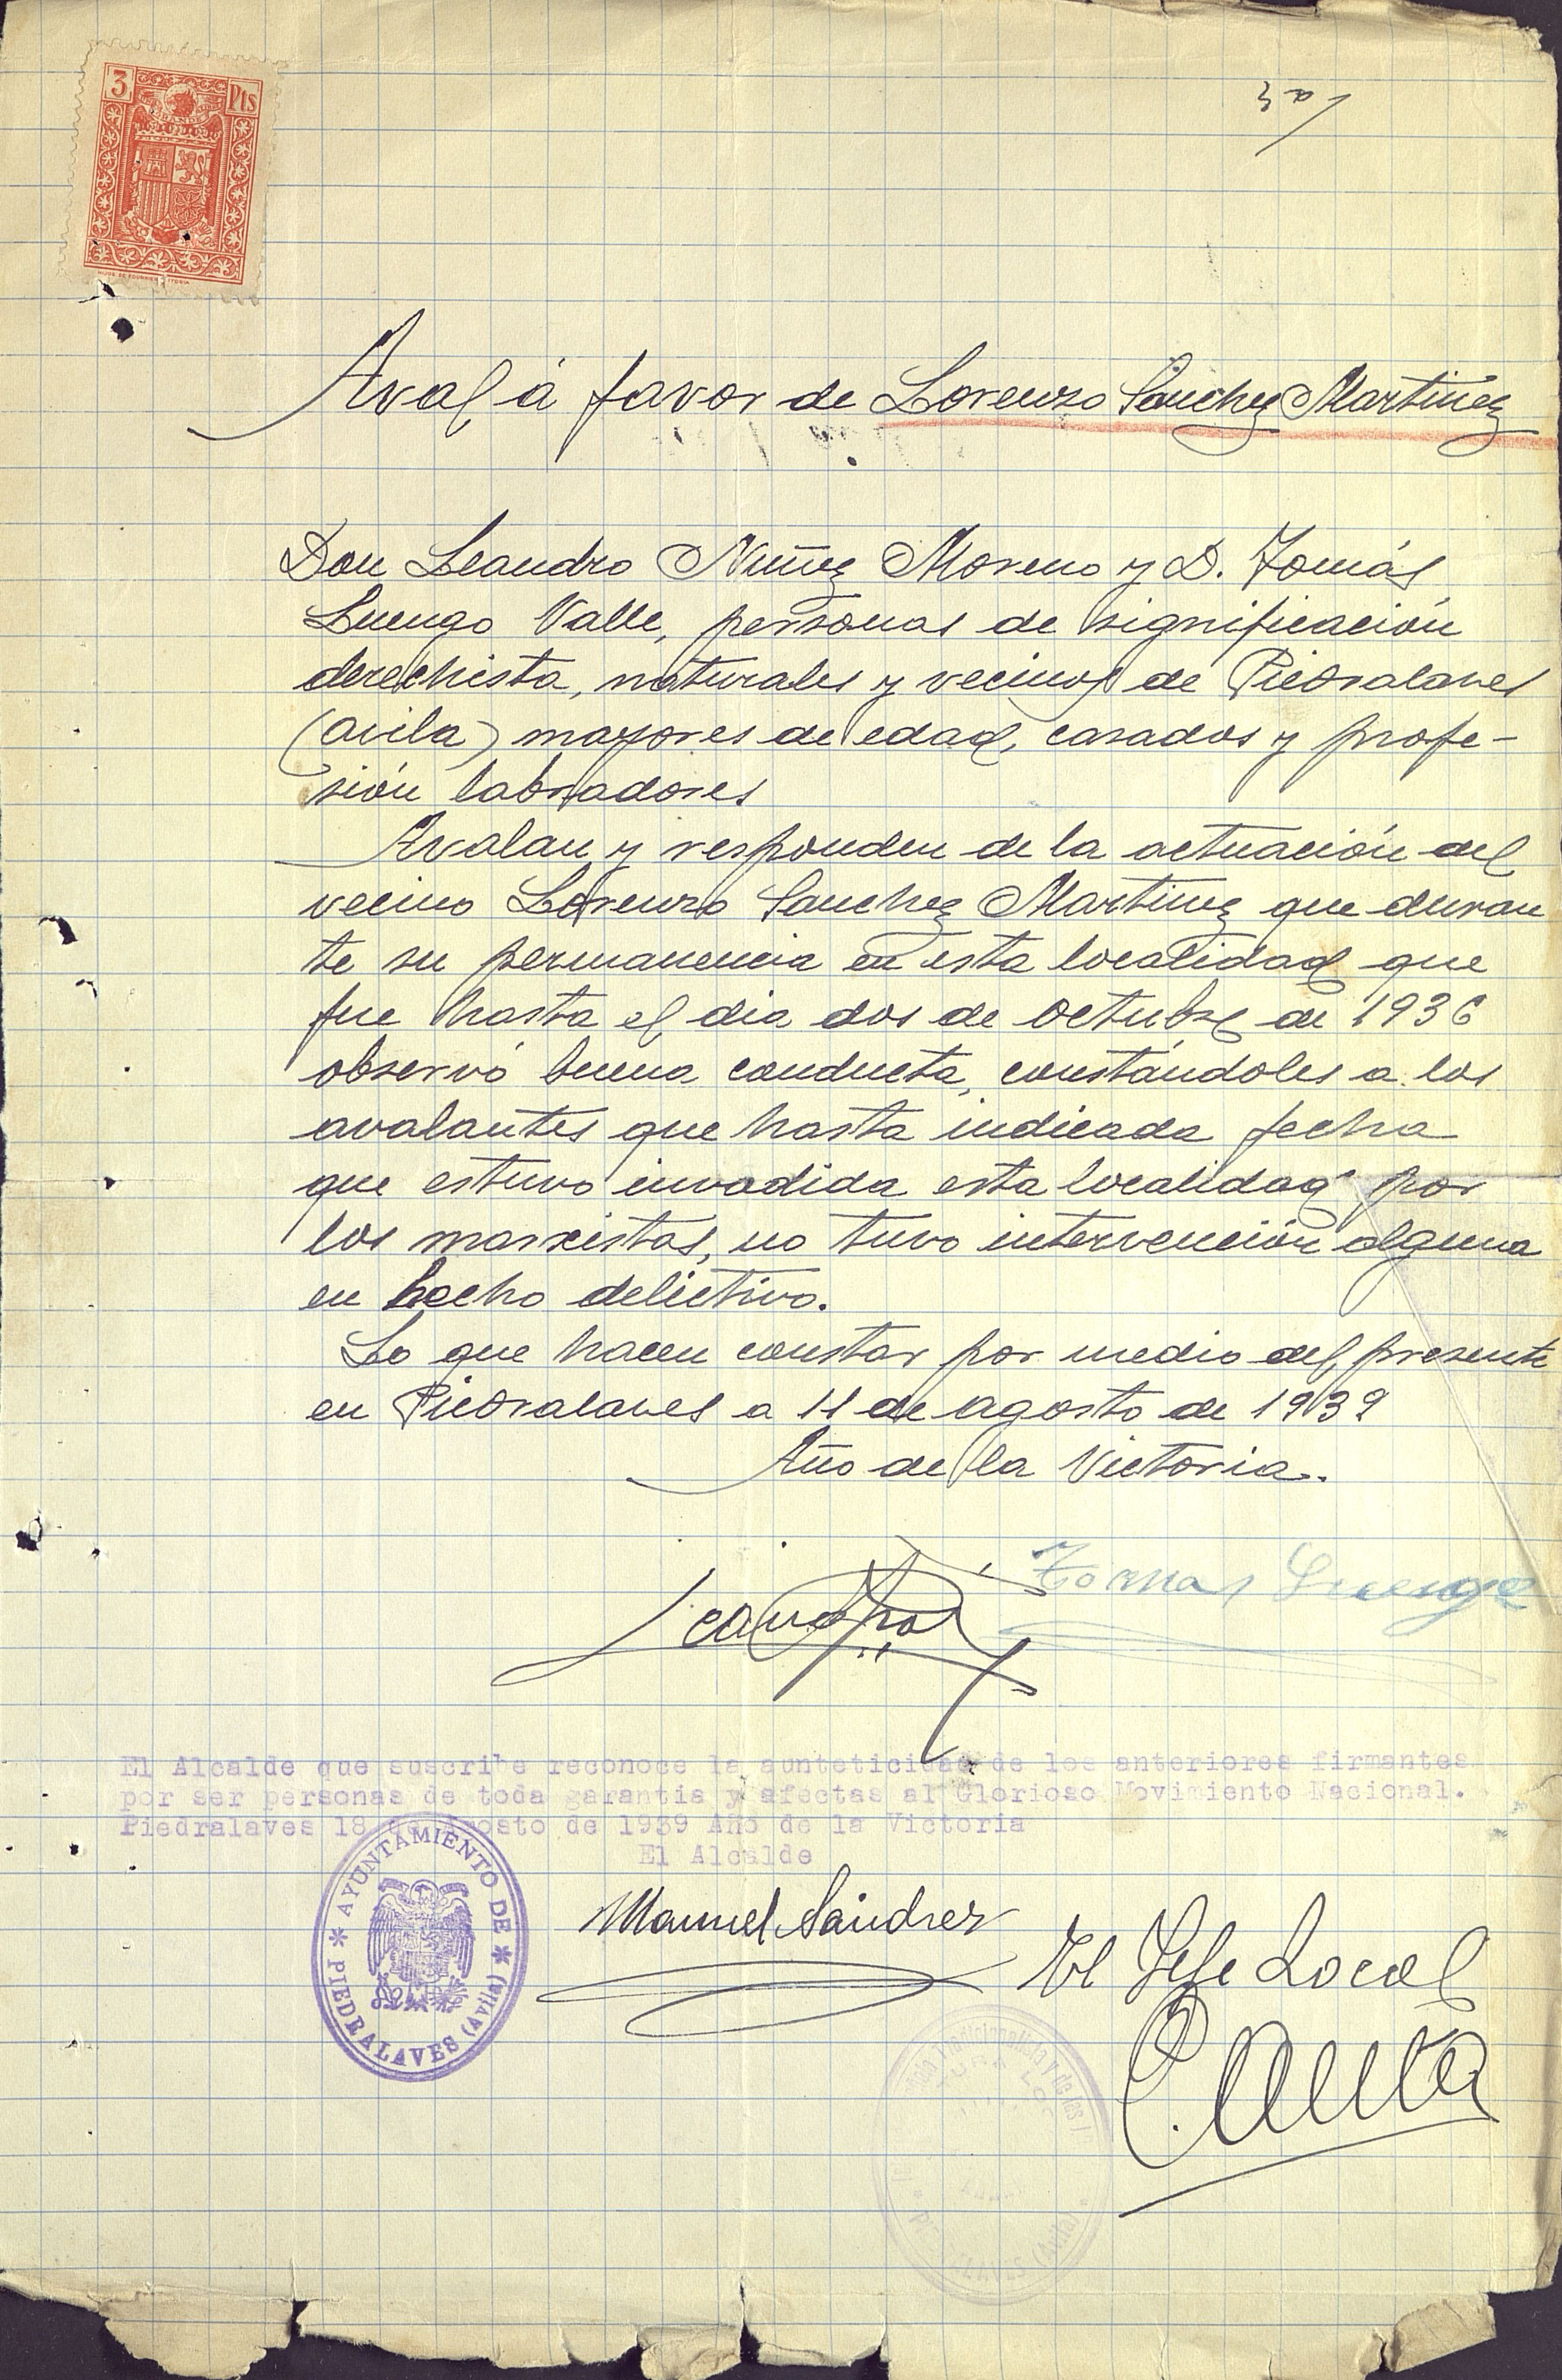 3 Pts
Aval á favor de Lorenzo Sanchez Martinez
Don Leandro Nuñez Moreno y D. Tomás
Luengo Valle, personas de significación
derechista, naturales y vecinos de Piedralaves
(avila) mayores de edad, casados y profe-
sión labradores
Avalan y responden de la actuación del
vecino Lorenzo Sanchez Martinez que duran
te su permanencia en esta localidad que
fue hasta el dia dos de octubre de 1936
observó buena conducta, constándoles a los
avalantes que hasta indicada fecha
que estuvo invadida esta localidad por
los marxistas, no tuvo intervención alguna
en hecho delictivo.
Lo que hacen constar por medio del presente
en Piedralaves a 11 de agosto de 1939
Año de la Victoria.
Tomas Luengo
El Alcalde que suscribe reconoce la aunteticidad de los anteriores firmantes
por ser personas de toda garantia y afectas al Glorioso Movimiento Nacional.
Piedralaves 18 de Agosto de 1939 Año de la Victoria
El Alcalde
AYUNTAMIENTO DE
PIEDRALAVES (Avila)
Manuel Sánchez
El Jefe Local
Tradicionalista y de las J
PIEDRALAVES (Avila)